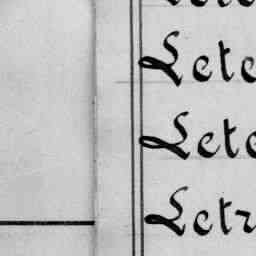 Lete
Lete
Letr